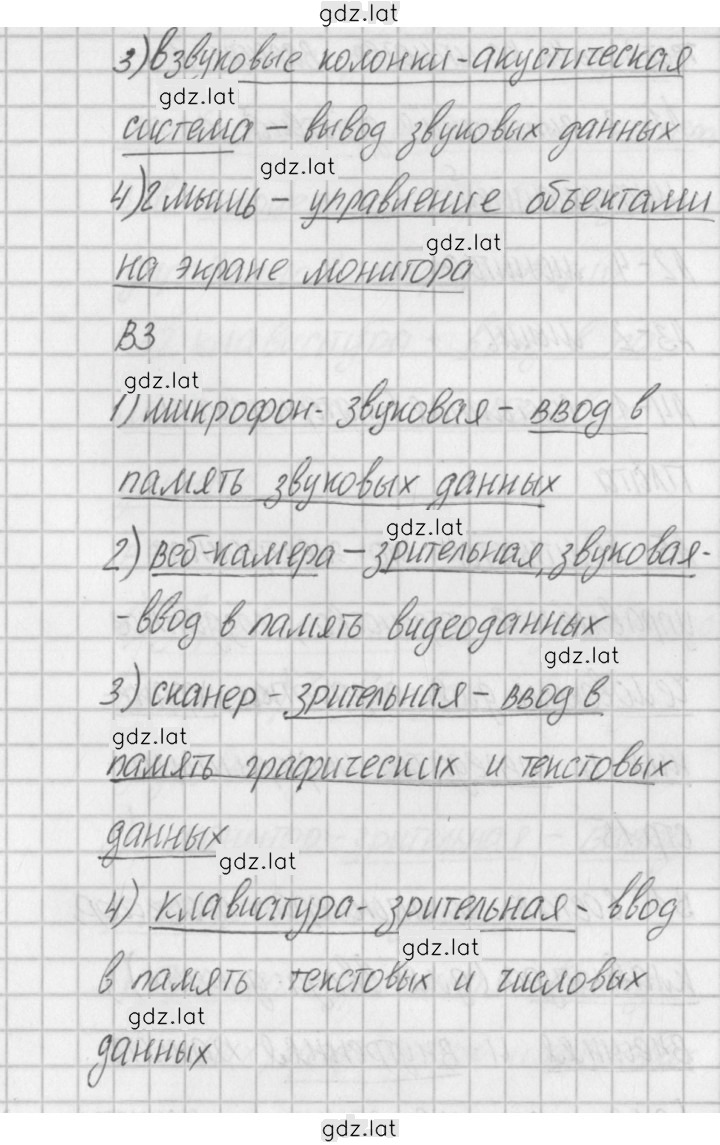 gdz.lat
3) в звуковые колонки - акустическая
gdz.lat
система - вывод звуковых данных
gdz.lat
4) 2 мышь - управление объектами
gdz.lat
на экране монитора
В3
gdz.lat
1) микрофон - звуковая - ввод в
память звуковых данных
gdz.lat
2) веб-камера - зрительная, звуковая -
- ввод в память видеоданных
gdz.lat
3) сканер - зрительная - ввод в
gdz.lat
память графических и текстовых
данных
gdz.lat
4) клавиатура - зрительная - ввод
gdz.lat
в память текстовых и числовых
gdz.lat
данных
gdz.lat